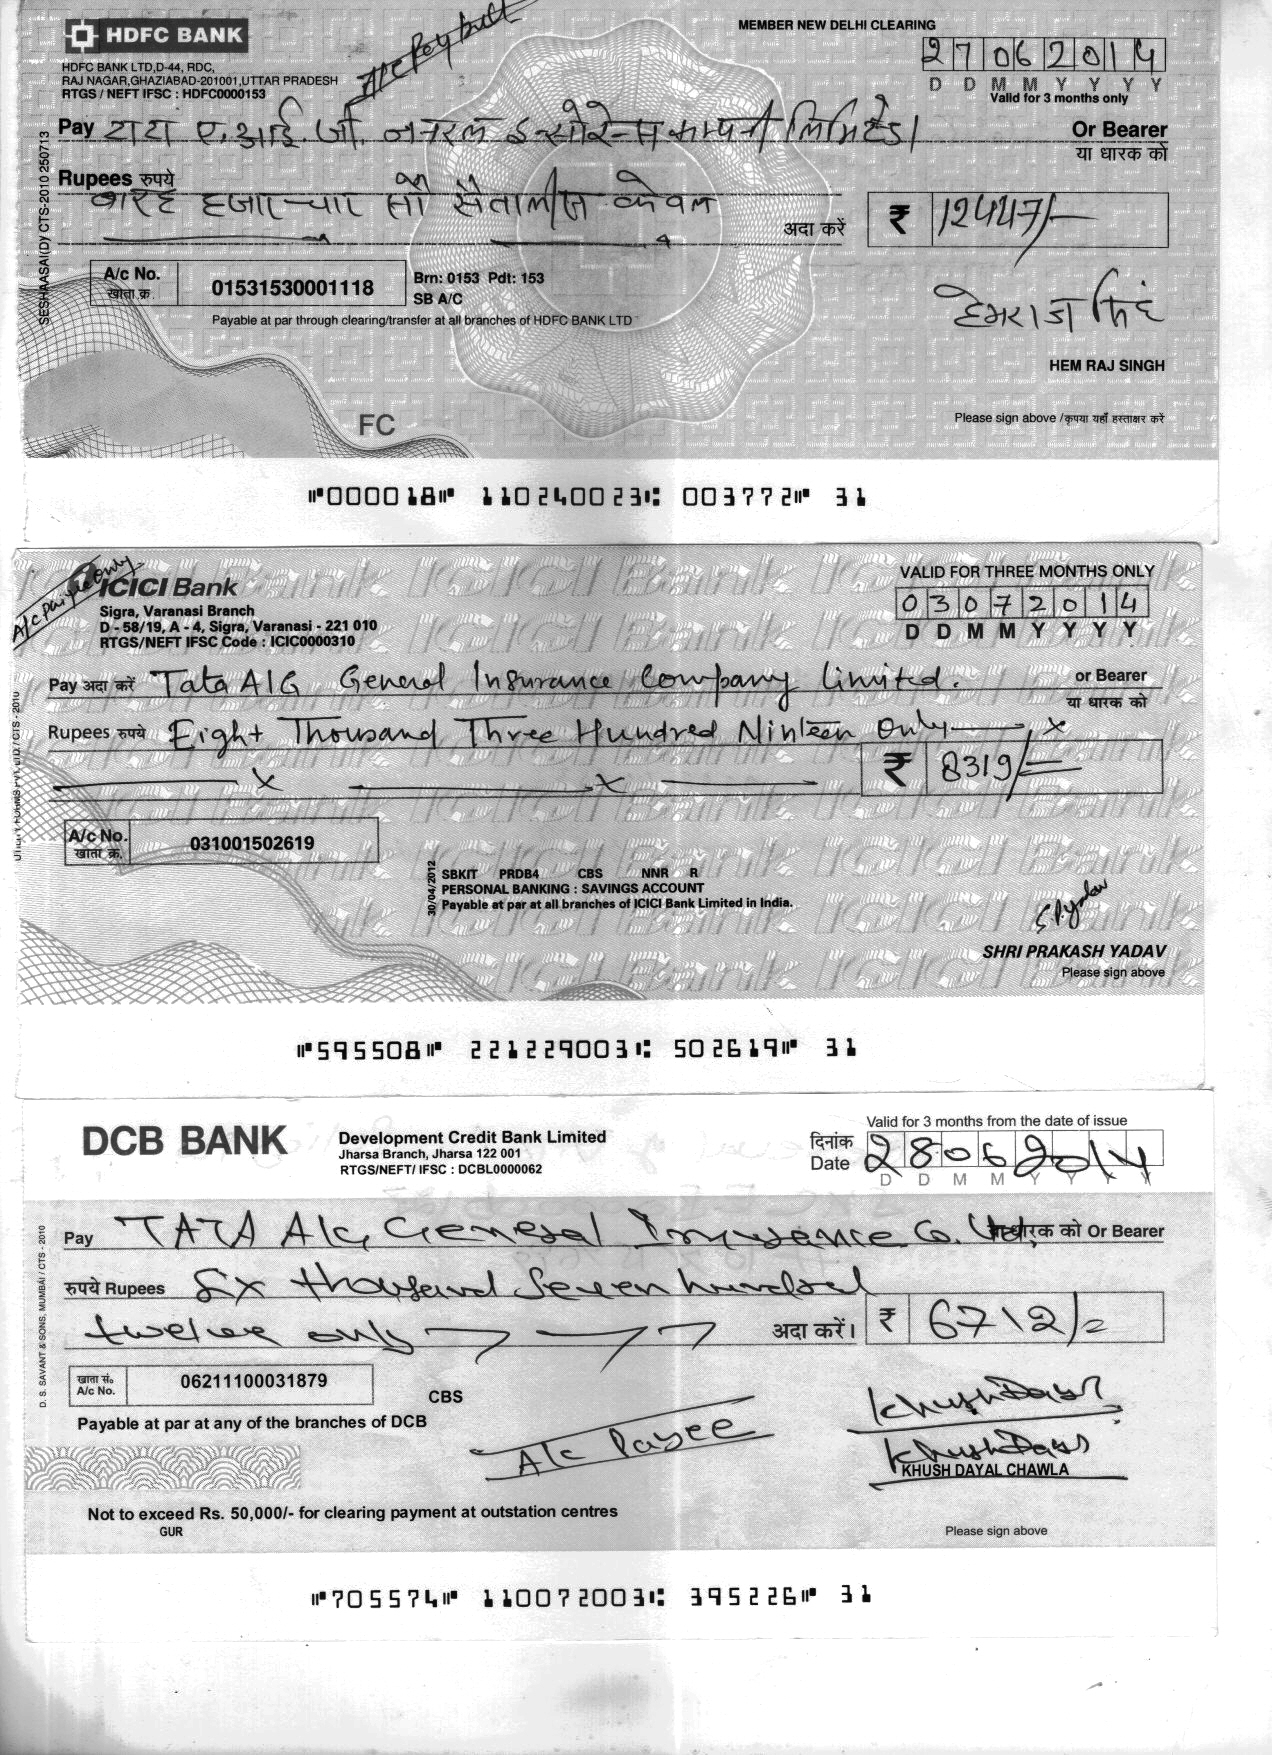 HDFC BANK
A/c Pay
MEMBER NEW DELHI CLEARING
HDFC BANK LTD,D-44, RDC,
RAJ NAGAR,GHAZIABAD-201001,UTTAR PRADESH
RTGS / NEFT IFSC : HDFC0000153
27062014
D D M M Y Y Y Y
Valid for 3 months only
Pay टाटा ए. आई. जी. जनरल इन्सोरेन्स कम्पनी लिमिटेड। Or Bearer
या धारक को
Rupees रुपये बारह हजार चार सौ सैतालीस केवल
अदा करें ₹ 12447/-
A/c No. खाता क्र. 01531530001118
Brn: 0153 Pdt: 153
SB A/C
Payable at par through clearing/transfer at all branches of HDFC BANK LTD
हेमराज सिंह
HEM RAJ SINGH
FC
Please sign above / कृपया यहाँ हस्ताक्षर करें
SESHAASAI(D)/ CTS-2010 250713
⑈000018⑈ 110240023⑆ 003772⑈ 31
A/c payee only
ICICI Bank
VALID FOR THREE MONTHS ONLY
Sigra, Varanasi Branch
D - 58/19, A - 4, Sigra, Varanasi - 221 010
RTGS/NEFT IFSC Code : ICIC0000310
03072014
D D M M Y Y Y Y
Pay अदा करें Tata AIG General Insurance Company Limited. or Bearer
या धारक को
Rupees रुपये Eight Thousand Three Hundred Ninteen Only
₹ 8319/=
A/c No. खाता क्र. 031001502619
30/04/2012
SBKIT PRDB4 CBS NNR R
PERSONAL BANKING : SAVINGS ACCOUNT
Payable at par at all branches of ICICI Bank Limited in India.
S.P.yadav
SHRI PRAKASH YADAV
Please sign above
⑈595508⑈ 221229003⑆ 502619⑈ 31
DCB BANK
Development Credit Bank Limited
Jharsa Branch, Jharsa 122 001
RTGS/NEFT/ IFSC : DCBL0000062
Valid for 3 months from the date of issue
दिनांक
Date 28062014
D D M M Y Y Y Y
Pay TATA AIG General Insurance Co. Ltd. या धारक को Or Bearer
रुपये Rupees Six thousand Seven hundred
twelve only अदा करें। ₹ 6712/=
खाता सं. A/c No. 06211100031879
CBS
Payable at par at any of the branches of DCB
A/c Payee
Khush Dayal
Khush Dayal
KHUSH DAYAL CHAWLA
Not to exceed Rs. 50,000/- for clearing payment at outstation centres
GUR
Please sign above
D. S. SAVANT & SONS, MUMBAI / CTS - 2010
⑈705574⑈ 110072003⑆ 395226⑈ 31